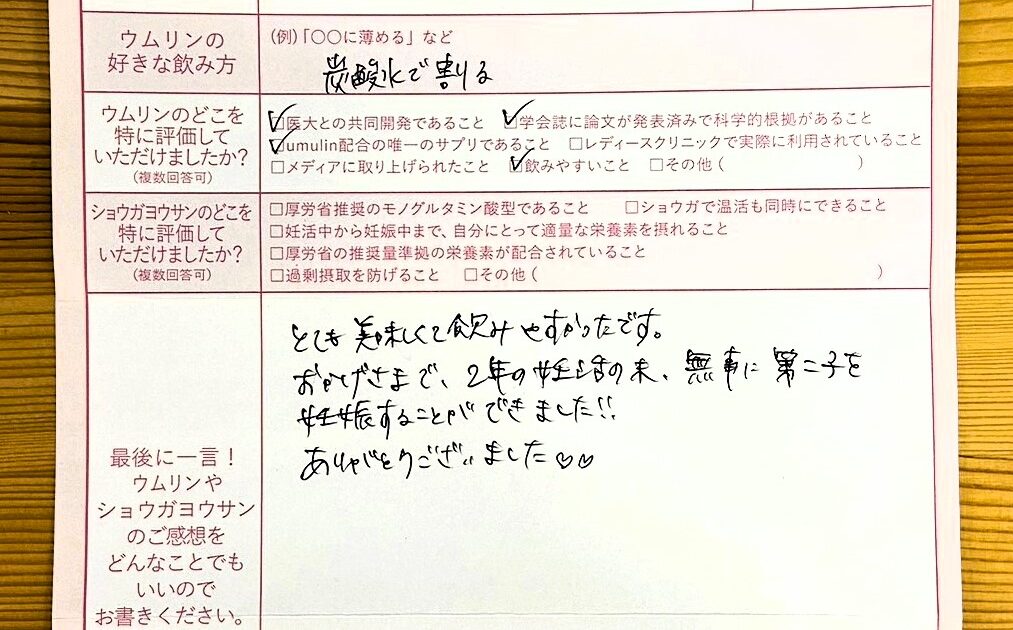 ウムリンの
好きな飲み方
(例)「〇〇に薄める」など
炭酸水で割る
ウムリンのどこを
特に評価して
いただけましたか?
(複数回答可)
☑医大との共同開発であること ☑学会誌に論文が発表済みで科学的根拠があること
☑umulin配合の唯一のサプリであること □レディースクリニックで実際に利用されていること
□メディアに取り上げられたこと ☑飲みやすいこと □その他( )
ショウガヨウサンのどこを
特に評価して
いただけましたか?
(複数回答可)
□厚労省推奨のモノグルタミン酸型であること □ショウガで温活も同時にできること
□妊活中から妊娠中まで、自分にとって適量な栄養素を摂れること
□厚労省の推奨量準拠の栄養素が配合されていること
□過剰摂取を防げること □その他( )
最後に一言!
ウムリンや
ショウガヨウサン
のご感想を
どんなことでも
いいので
お書きください。
とても美味しくて飲みやすかったです。
おかげさまで、2年の妊活の末、無事に第二子を
妊娠することができました!!
ありがとうございました♡♡